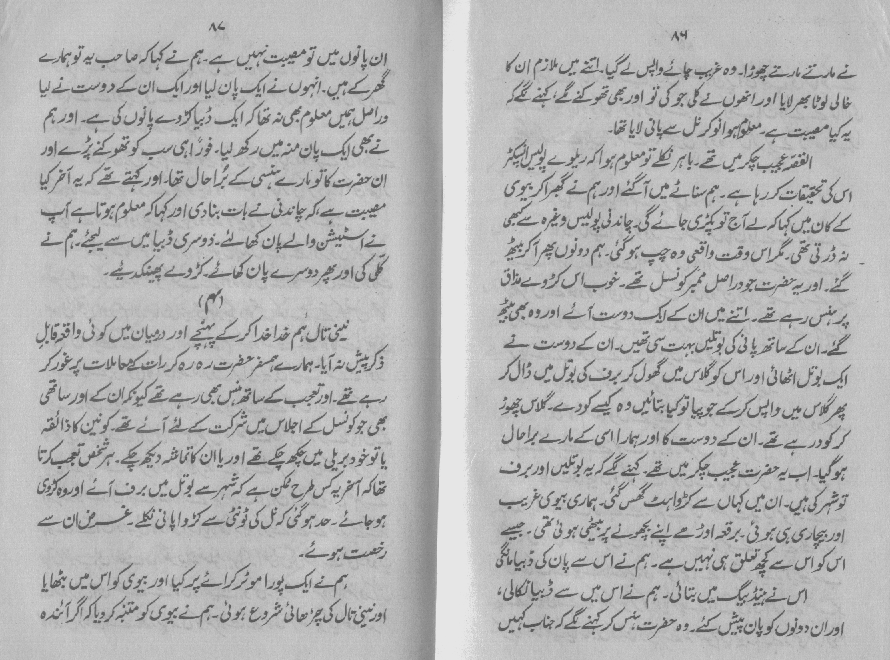 ۸۶
نے مارتے مارتے چھوڑا۔ وہ غریب چائے واپس لے گیا۔ اتنے میں ملازم ان کا
خالی لوٹا بھر لایا اور انھوں نے کلی جو کی تو اور بھی تھوکنے لگے، کہنے لگے کہ
یہ کیا مصیبت ہے۔ معلوم ہوا نوکر نل سے پانی لایا تھا۔
الغقہ عجیب چکر میں تھے۔ باہر نکلے تو معلوم ہوا کہ ریلوے پولیس انسپکٹر
اس کی تحقیقات کر رہا ہے۔ ہم سناٹے میں آ گئے اور ہم نے گھبرا کر بیوی
کے کان میں کہا کہ لے آج تو پکڑی جائے گی۔ چاندنی پولیس وغیرہ سے کبھی
نہ ڈرتی تھی۔ مگر اس وقت واقعی وہ چپ ہوگئی۔ ہم دونوں پھر آ کر بیٹھ
گئے۔ اور یہ حضرت جو دراصل ممبر کونسل تھے۔ خوب اس کڑوے مذاق
پر ہنس رہے تھے۔ اتنے میں ان کے ایک دوست آئے اور وہ بھی بیٹھ
گئے۔ ان کے ساتھ پانی کی بوتلیں بہت سی تھیں۔ ان کے دوست نے
ایک بوتل اٹھائی اور اس کو گلاس میں گھول کر برف کی بوتل میں ڈال کر
پھر گلاس میں واپس کر کے جو پیا تو کیا بتائیں وہ کیسے کودے۔ گلاس چھوڑ
کر کود رہے تھے۔ ان کے دوست کا اور ہمارا اسی کے مارے برا حال
ہوگیا۔ اب یہ حضرت عجیب چکر میں تھے۔ کہنے لگے کہ یہ بوتلیں اور برف
تو شہر کی ہیں۔ ان میں کہاں سے کڑواہٹ گھس گئی۔ ہماری بیوی غریب
اور بیچاری بنی ہوئی۔ برقعہ اوڑھے اپنے بچھونے پر بیٹھی ہوئی تھی۔ جیسے
اس کو اس سے کچھ تعلق ہی نہیں ہے۔ ہم نے اس سے پان کی ڈبیا مانگی
اس نے ہینڈ بیگ میں بتائی۔ ہم نے اس میں سے ڈبیا نکالی،
اور ان دونوں کو پان پیش کئے۔ وہ حضرت ہنس کر کہنے لگے کہ جناب کہیں
۸۷
ان پانوں میں تو مصیبت نہیں ہے۔ ہم نے کہا کہ صاحب یہ تو ہمارے
گھر کے ہیں۔ انہوں نے ایک پان لیا اور ایک ان کے دوست نے لیا
دراصل ہمیں معلوم بھی نہ تھا کہ ایک ڈبیا کڑوے پانوں کی ہے۔ اور ہم
نے بھی ایک پان منہ میں رکھ لیا۔ فوراً ہی سب کو تھوکنے پڑے اور
ان حضرت کا تو مارے ہنسی کے برا حال تھا۔ اور کہتے تھے کہ یہ آخر کیا
مصیبت ہے، کہ چاندنی نے بات بنا دی اور کہا کہ معلوم ہوتا ہے آپ
نے اسٹیشن والے پان کھا لئے۔ دوسری ڈبیا میں سے لیجئے۔ ہم نے
کلی کی اور پھر دوسرے پان کھائے۔ کڑوے پھینک دیے۔
(۴)
نینی تال ہم خدا خدا کر کے پہنچے اور درمیان میں کوئی واقعہ قابلِ
ذکر پیش نہ آیا۔ ہمارے ہمسفر حضرت رہ رہ کر رات کے معاملات پر غور کر
رہے تھے۔ اور تعجب کے ساتھ ہنس بھی رہے تھے کیونکہ ان کے اور ساتھی
بھی جو کونسل کے اجلاس میں شرکت کے لئے آئے تھے۔ کونین کا ذائقہ
یا تو خود بریلی میں چکھ چکے تھے اور یا ان کا تماشہ دیکھ چکے۔ ہر شخص تعجب کرتا
تھا کہ آخر یہ کس طرح ممکن ہے کہ شہر سے بوتل میں برف آئے اور وہ کڑوی
ہو جائے۔ حد ہوگئی کہ نل کی ٹونٹی سے کڑوا پانی نکلے۔ غرض ان سے
رخصت ہوئے۔
ہم نے ایک پورا موٹر کرائے پر کیا اور بیوی کو اس میں بٹھایا
اور نینی تال کی چڑھائی شروع ہوئی۔ ہم نے بیوی کو متنبہ کر دیا کہ اگر آئندہ